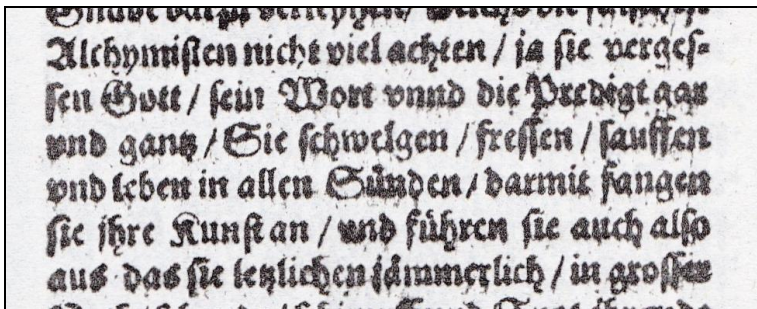 Alchymisten nicht viel achten / ja sie verges-
sen Gott / sein Wort vnnd die Predigt gar
vnd gantz / Sie schwelgen / fressen / sauffen
vnd leben in allen Sünden / darmit fangen
sie jhre Kunst an / vnd führen sie auch also
aus das sie letzlichen jämmerlich / in grossen